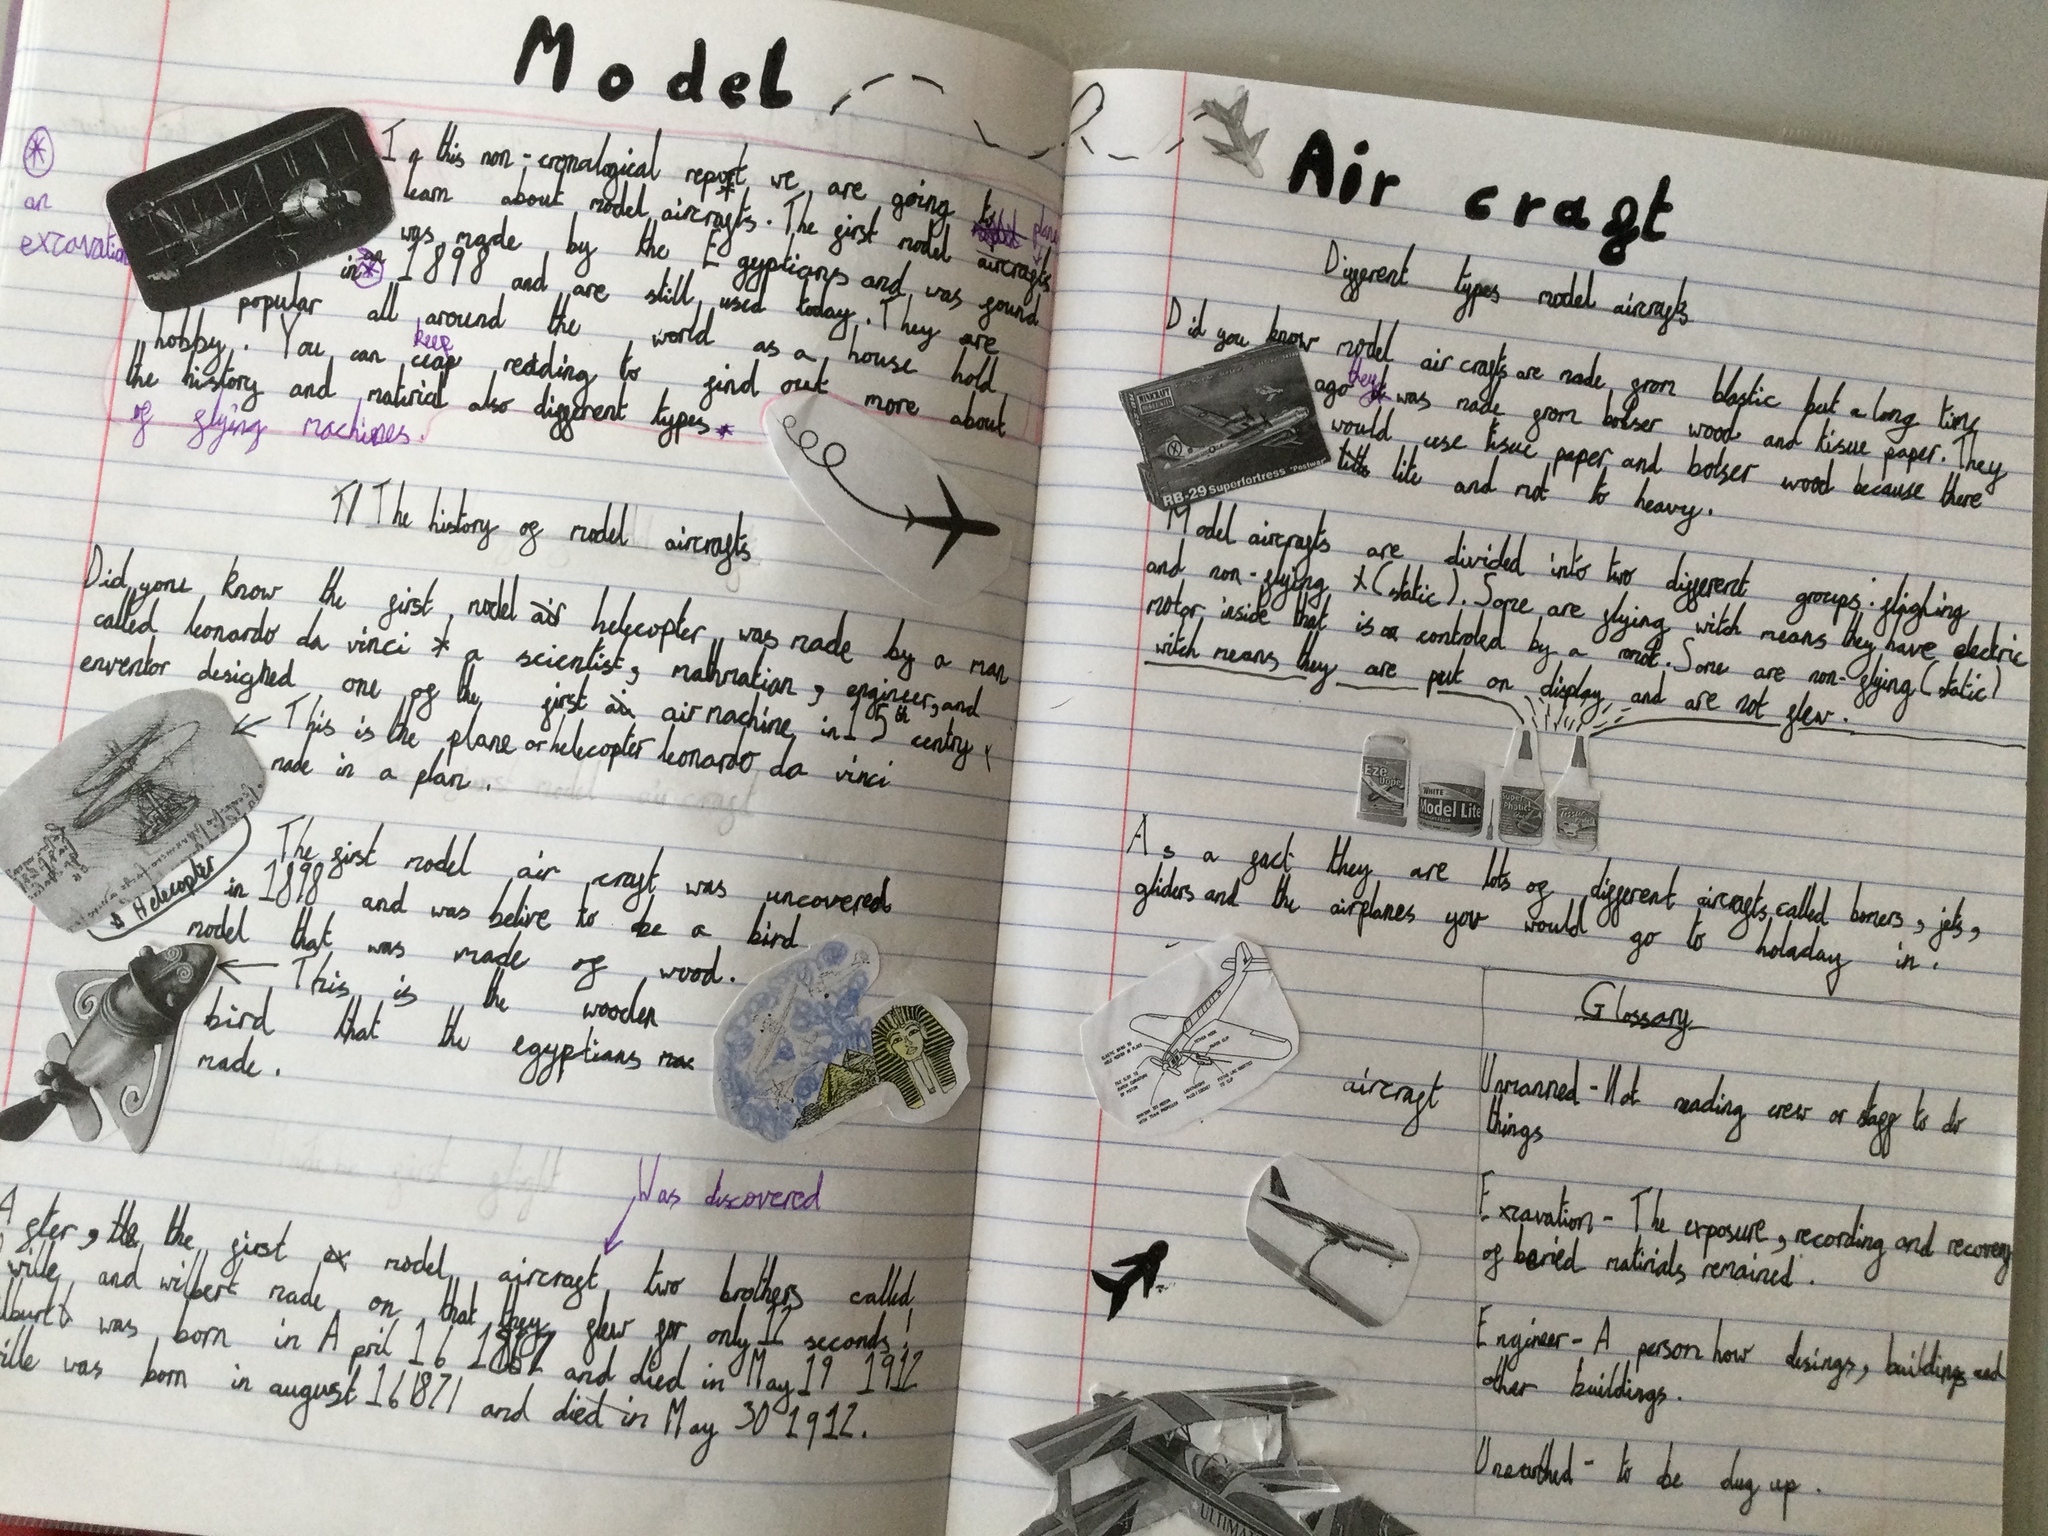 Model
In this non-cronalogical report we are going to
learn about model aircrafts. The first model plane
aircrafts
was made by the Egyptians and was found
in an
* 1898 and are still used today. They are
*
an
excavation
popular all around the world as a house hold
hobby. You can keep reading to find out more about
the history and matirial also different types *
of flying machines.
T/ The history of model aircrafts
Did youe know the first model air helecopter was made by a man
called leonardo da vinci * a scientist, mathmation, engineer, and
enventor designed one of the first air machine in 15th centry
This is the plane or helecopter leonardo da vinci
made in a plan.
Helecopter
The first model air craft was uncovered
in 1898 and was belive to be a bird
model that was made of wood.
This is the wooden
bird that the egyptians
made.
Was discovered
After, the the first model aircraft two brothers called
wille and wilbert made on that they flew for only 12 seconds!
was born in April 16 1867 and died in May 19 1912
was born in august 16 1871 and died in May 30 1912.
Air craft
Different types model aircrafts
Did you know model air crafts are made from blastic but a long time
ago they was made from bolser wood and tisue paper. They
would use tisue paper and bolser wood because there
lite and not to heavy.
MINICRAFT
RB-29 Superfortress "Postwar"
Model aircrafts are divided into two different groups: flighing
and non-flying (static). Some are flying witch means they have electric
motor inside that is controled by a rmot. Some are non-flying (static)
witch means they are put on display and are not flew.
Eze Dope
WHITE
Model Lite
Super Phatic!
As a fact they are lots of different aircrafts called bomers, jets,
gliders and the airplanes you would go to holaday in.
Glossary
aircraft
Unmanned - Not neading crew or staff to do
things
Excavation - The exposure, recording and recovery
of beried matirials remained.
Engineer - A person how disings, buildings and
other buildings.
Unearthed - to be dug up.
ULTIMAT